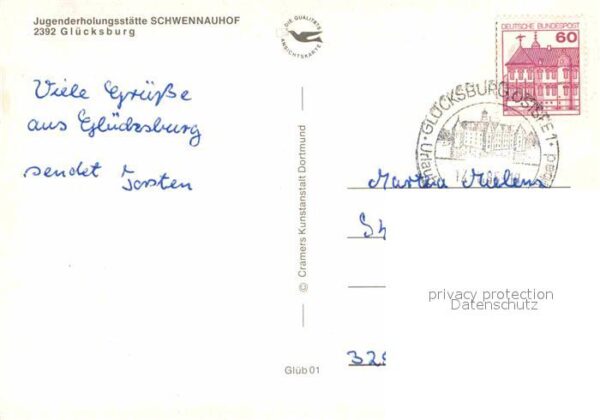 Jugenderholungsstätte SCHWENNAUHOF
2392 Glücksburg
DIE QUALITÄTS
ANSICHTSKARTE
DEUTSCHE BUNDESPOST
60
GLÜCKSBURG, OSTSEE 1
Urlaub
Viele Grüße
aus Glücksburg
sendet Torsten
© Cramers Kunstanstalt Dortmund
Martha
privacy protection
Datenschutz
Glüb 01